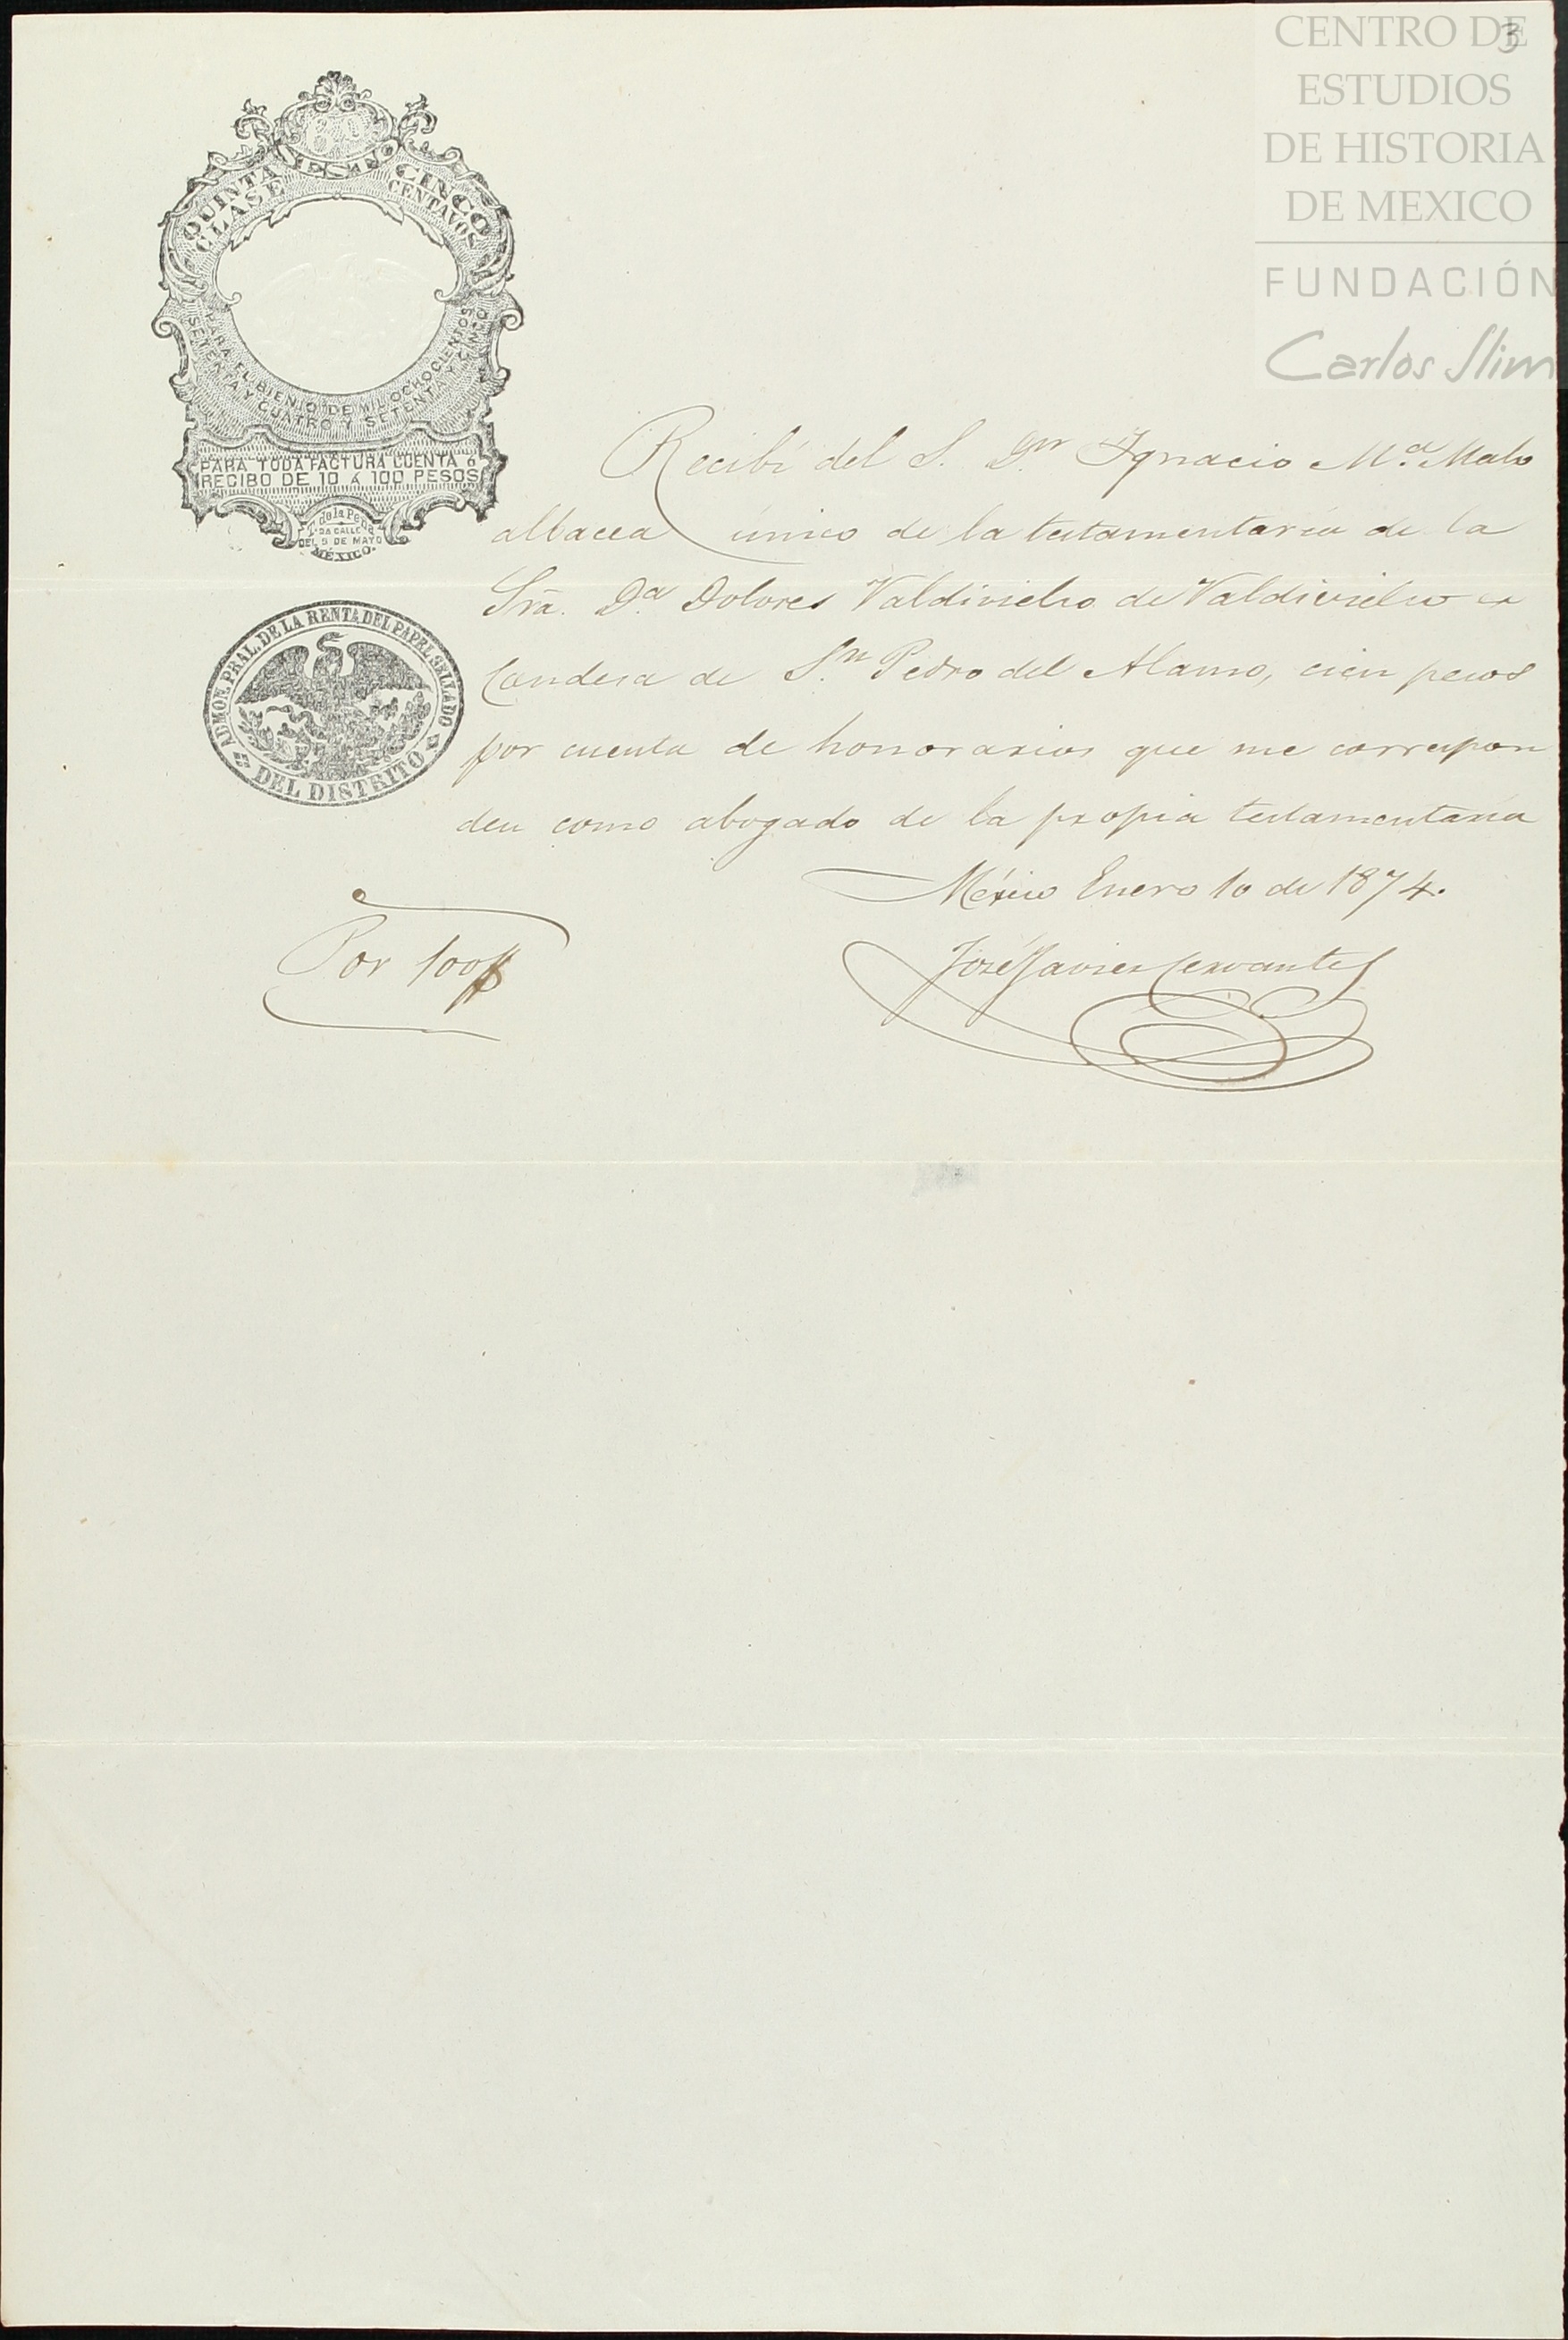 3
CENTRO DE
ESTUDIOS
DE HISTORIA
DE MEXICO
FUNDACIÓN
Carlos Slim
QUINTA CLASE
CINCO CENTAVOS
PARA EL BIENIO DE MIL OCHOCIENTOS
SETENTA Y CUATRO Y SETENTA Y CINCO
PARA TODA FACTURA CUENTA ó
RECIBO DE 10 Á 100 PESOS
de la Peña
2DA CALLE
DEL 5 DE MAYO
MÉXICO.
ADMON. PRAL. DE LA RENTA DEL PAPEL SELLADO
DEL DISTRITO
Recibí del S. Dn. Ignacio Ma. Malo
albacea único de la testamentaría de la
Sra. Da. Dolores Valdivielso de Valdivielso ex
Condesa de Sn. Pedro del Alamo, cien pesos
por cuenta de honorarios que me correspon
den como abogado de la propia testamentaría
México Enero 10 de 1874.
Por 100$
José Javier Cervantes